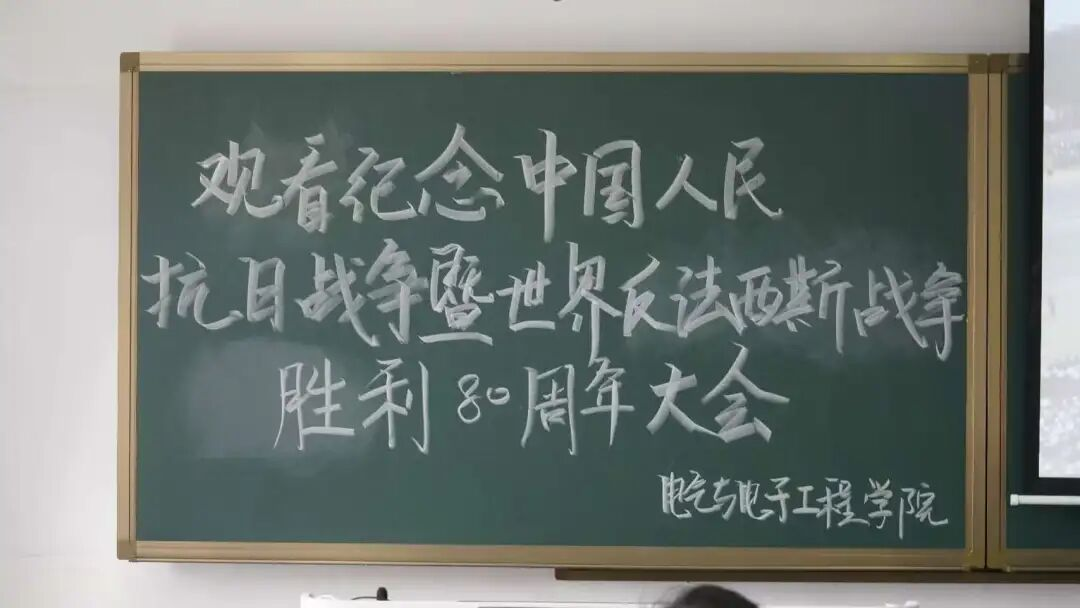 观看纪念中国人民
抗日战争暨世界反法西斯战争
胜利80周年大会
电气与电子工程学院